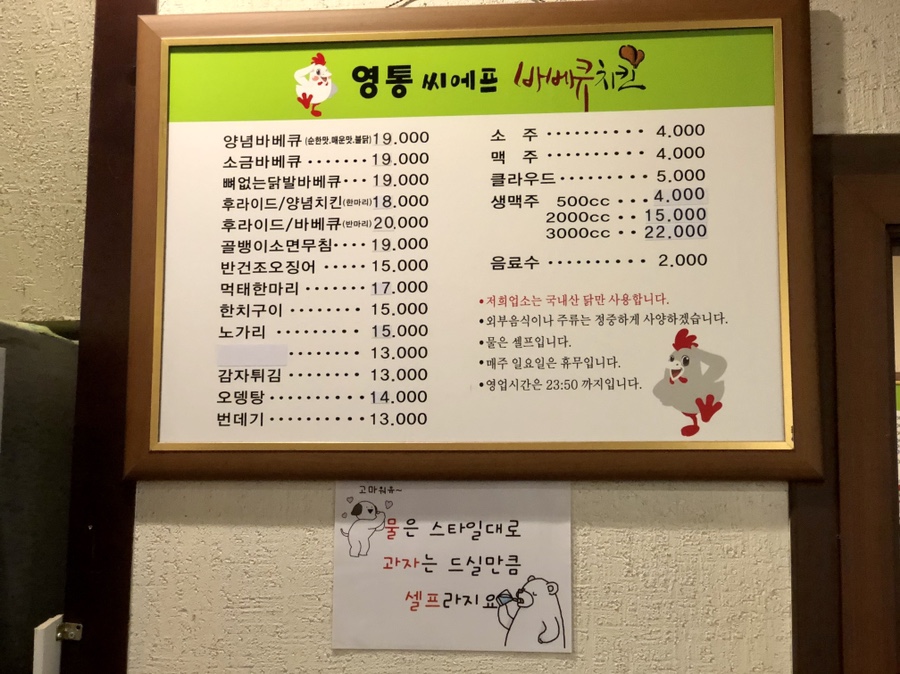 영통 씨에프 바베큐치킨
양념바베큐(순한맛,매운맛,불닭)19.000
소금바베큐·······19.000
뼈없는닭발바베큐···19.000
후라이드/양념치킨(한마리)18.000
후라이드/바베큐(반마리)20.000
골뱅이소면무침····19.000
반건조오징어 ·····15.000
먹태한마리 ·······17.000
한치구이 ·········15.000
노가리 ·········15.000
·········13.000
감자튀김 ·········13.000
오뎅탕··········14.000
번데기··········13.000
소 주 ·········· 4.000
맥 주 ·········· 4.000
클라우드········· 5.000
생맥주 500cc ··· 4.000
2000cc ·· 15.000
3000cc ·· 22.000
음료수 ·········· 2.000
•저희업소는 국내산 닭만 사용합니다.
•외부음식이나 주류는 정중하게 사양하겠습니다.
•물은 셀프입니다.
•매주 일요일은 휴무입니다.
•영업시간은 23:50 까지입니다.
고마워유~
물은 스타일대로
과자는 드실만큼
셀프라지요